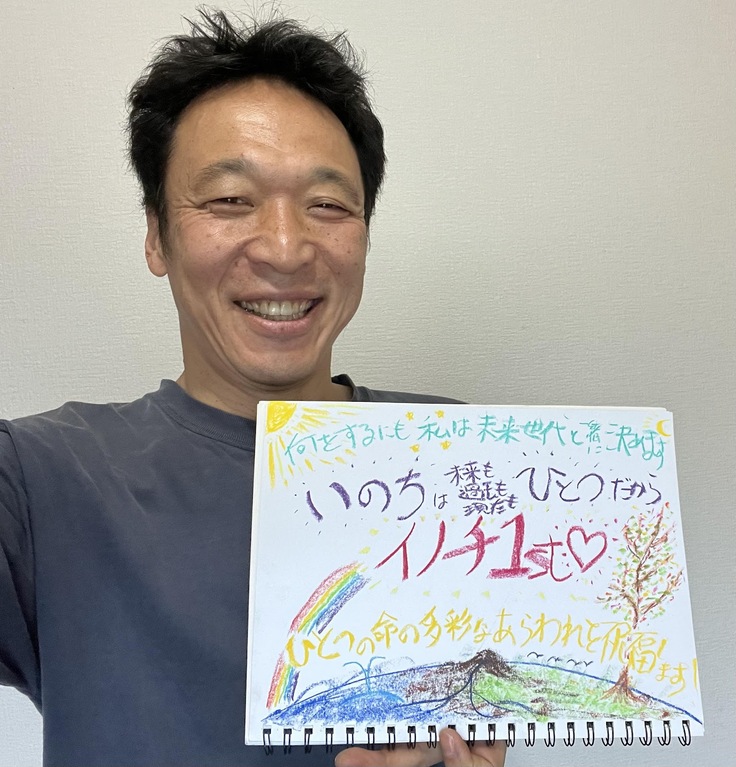 何をするにも 私は 未来世代と一緒に 決めます
いのちは 未来も 過去も 現在も ひとつだから
イノチ1stむ♡
ひとつの命の多彩なあらわれを祝福します!